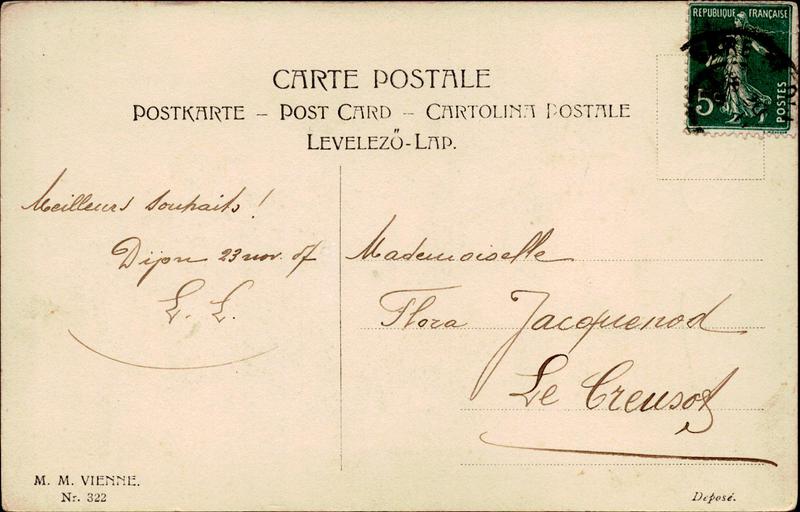 RÉPUBLIQUE FRANÇAISE
5c
POSTES
CARTE POSTALE
POSTKARTE – POST CARD – CARTOLINA POSTALE
LEVELEZŐ-LAP.
Meilleurs souhaits !
Dijon 23 nov. 07
L. L.
Mademoiselle
Flora Jacquenod
Le Creusot
M. M. VIENNE.
Nr. 322
Deposé.